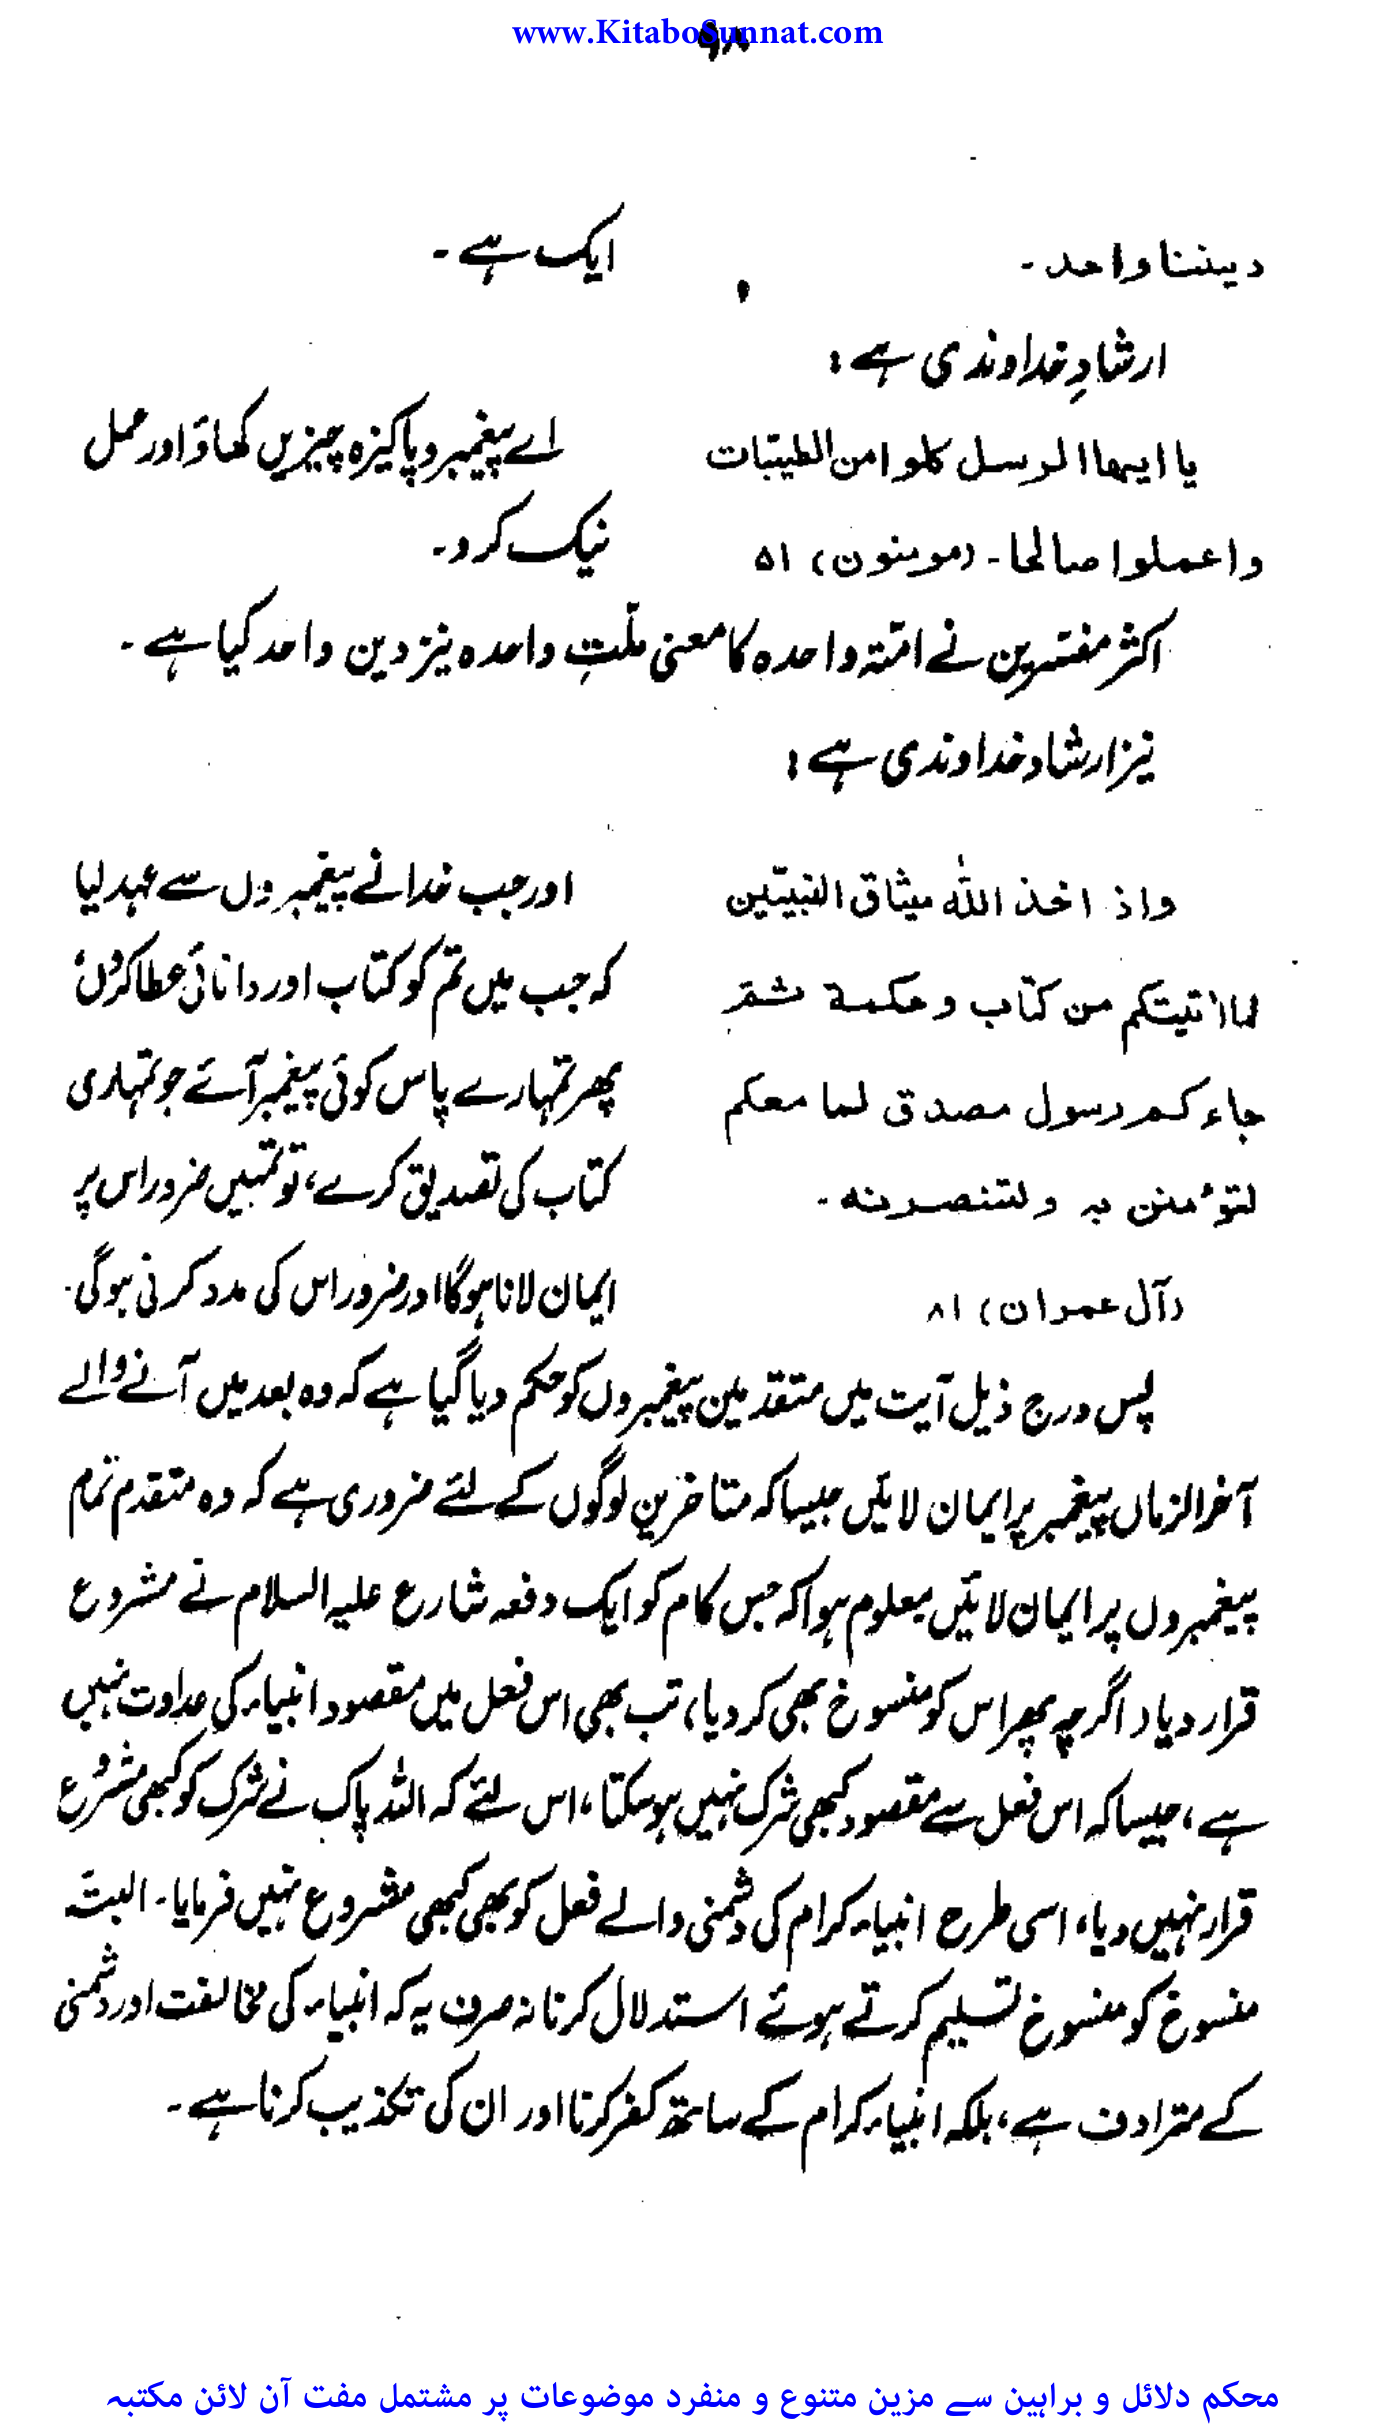 www.KitaboSunnat.com
دیننا واحد۔
ایک ہے۔
ارشادِ خداوندی ہے:
یا ایہا الرسل کلوا من الطیبّات
اے پیغمبرو پاکیزہ چیزیں کھاؤ اور عمل
واعملوا صالحا۔ (مومنون) ۵۱
نیک کرو۔
اکثر مفسّرین نے امّتہ واحدہ کا معنی ملّتِ واحدہ نیز دین واحد کیا ہے۔
نیز ارشاد خداوندی ہے:
واذ اخذ اللہ میثاق النبیّین
اور جب خدا نے پیغمبروں سے عہد لیا
لما اٰتیتکم من کتاب وحکمة ثمّ
کہ جب میں تم کو کتاب اور دانائی عطا کروں،
جاءکم رسول مصدق لما معکم
پھر تمہارے پاس کوئی پیغمبر آئے جو تمہاری
لتؤمنن بہ ولتنصرنہ۔
کتاب کی تصدیق کرے، تو تمہیں ضرور اس پر
(آل عمران) ۸۱
ایمان لانا ہوگا اور ضرور اس کی مدد کرنی ہوگی۔
پس درج ذیل آیت میں متقدّمین پیغمبروں کو حکم دیا گیا ہے کہ وہ بعد میں آنے والے
آخرالزماں پیغمبر پر ایمان لائیں جیسا کہ متاخرین لوگوں کے لئے ضروری ہے کہ وہ متقدم تمام
پیغمبروں پر ایمان لائیں۔ معلوم ہوا کہ جس کام کو ایک دفعہ شارع علیہ السلام نے مشروع
قرار دیا (اگرچہ پھر اس کو منسوخ بھی کر دیا)، تب بھی اس فعل میں مقصود انبیاء کی عداوت نہیں
ہے، جیسا کہ اس فعل سے مقصود کبھی شرک نہیں ہو سکتا، اس لئے کہ اللہ پاک نے شرک کو کبھی مشروع
قرار نہیں دیا، اسی طرح انبیاء کرام کی دشمنی والے فعل کو بھی کبھی مشروع نہیں فرمایا۔ البتہ
منسوخ کو منسوخ تسلیم کرتے ہوئے استدلال کرنا نہ صرف یہ کہ انبیاء کی مخالفت اور دشمنی
کے مترادف ہے، بلکہ انبیاء کرام کے ساتھ کفر کرنا اور ان کی تکذیب کرنا ہے۔
محکم دلائل و براہین سے مزین متنوع و منفرد موضوعات پر مشتمل مفت آن لائن مکتبہ